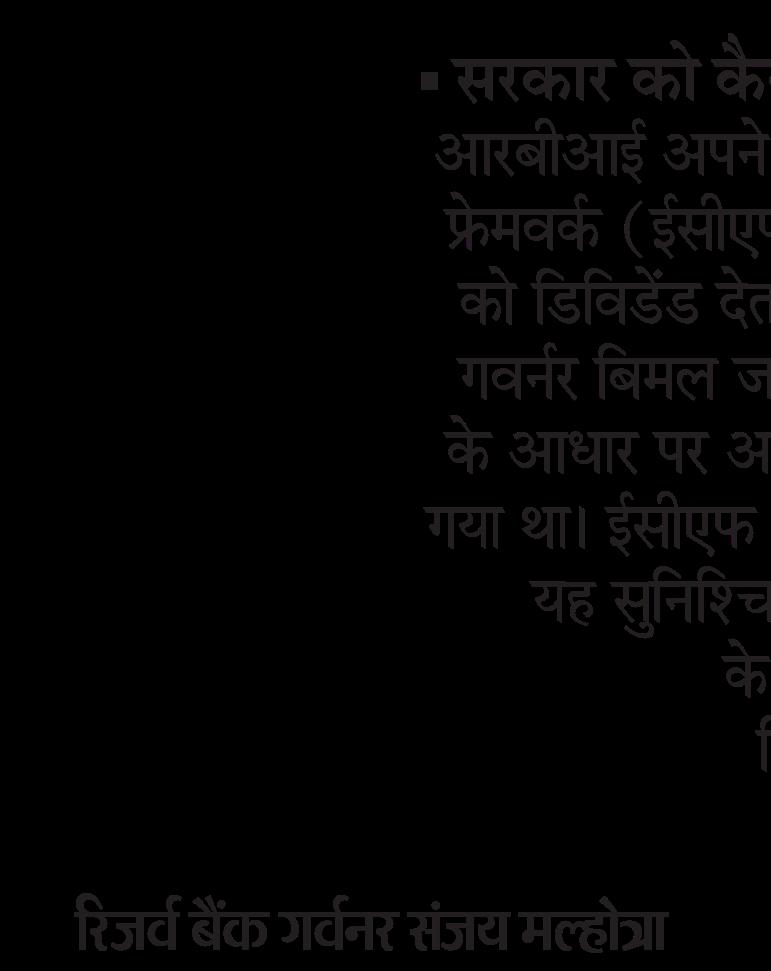 ▪ सरकार को
आरबीआई अपने
फ्रेमवर्क
को डिविडेंड
गवर्नर बिमल
के आधार पर
गया था। ईसीएफ
यह
के
रिजर्व बैंक गर्वनर संजय मल्होत्रा